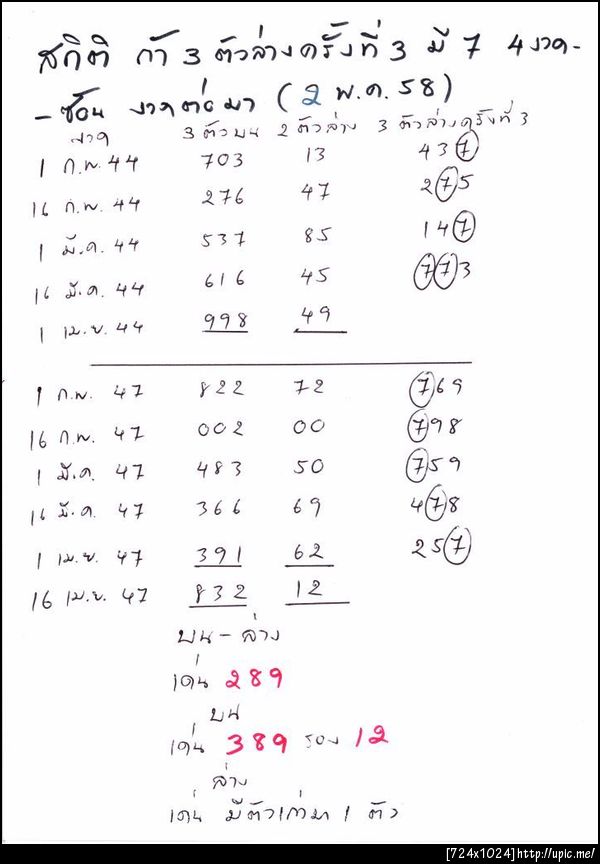 สถิติ ถ้า 3 ตัวล่างครั้งที่ 3 มี 7 4 งวด-
-ซ้อน งวดต่อมา (2 พ.ค. 58)
งวด 3 ตัวบน 2 ตัวล่าง 3 ตัวล่างครั้งที่ 3
1 ก.พ. 44 703 13 437
16 ก.พ. 44 276 47 275
1 มี.ค. 44 537 85 147
16 มี.ค. 44 616 45 773
1 เม.ย. 44 998 49
1 ก.พ. 47 822 72 769
16 ก.พ. 47 002 00 798
1 มี.ค. 47 483 50 759
16 มี.ค. 47 366 69 478
1 เม.ย. 47 391 62 257
16 เม.ย. 47 832 12
บน - ล่าง
เด่น 289
บน
เด่น 389 รอง 12
ล่าง
เด่น มีตัวเก่ามา 1 ตัว
[724x1024]http://upic.me/